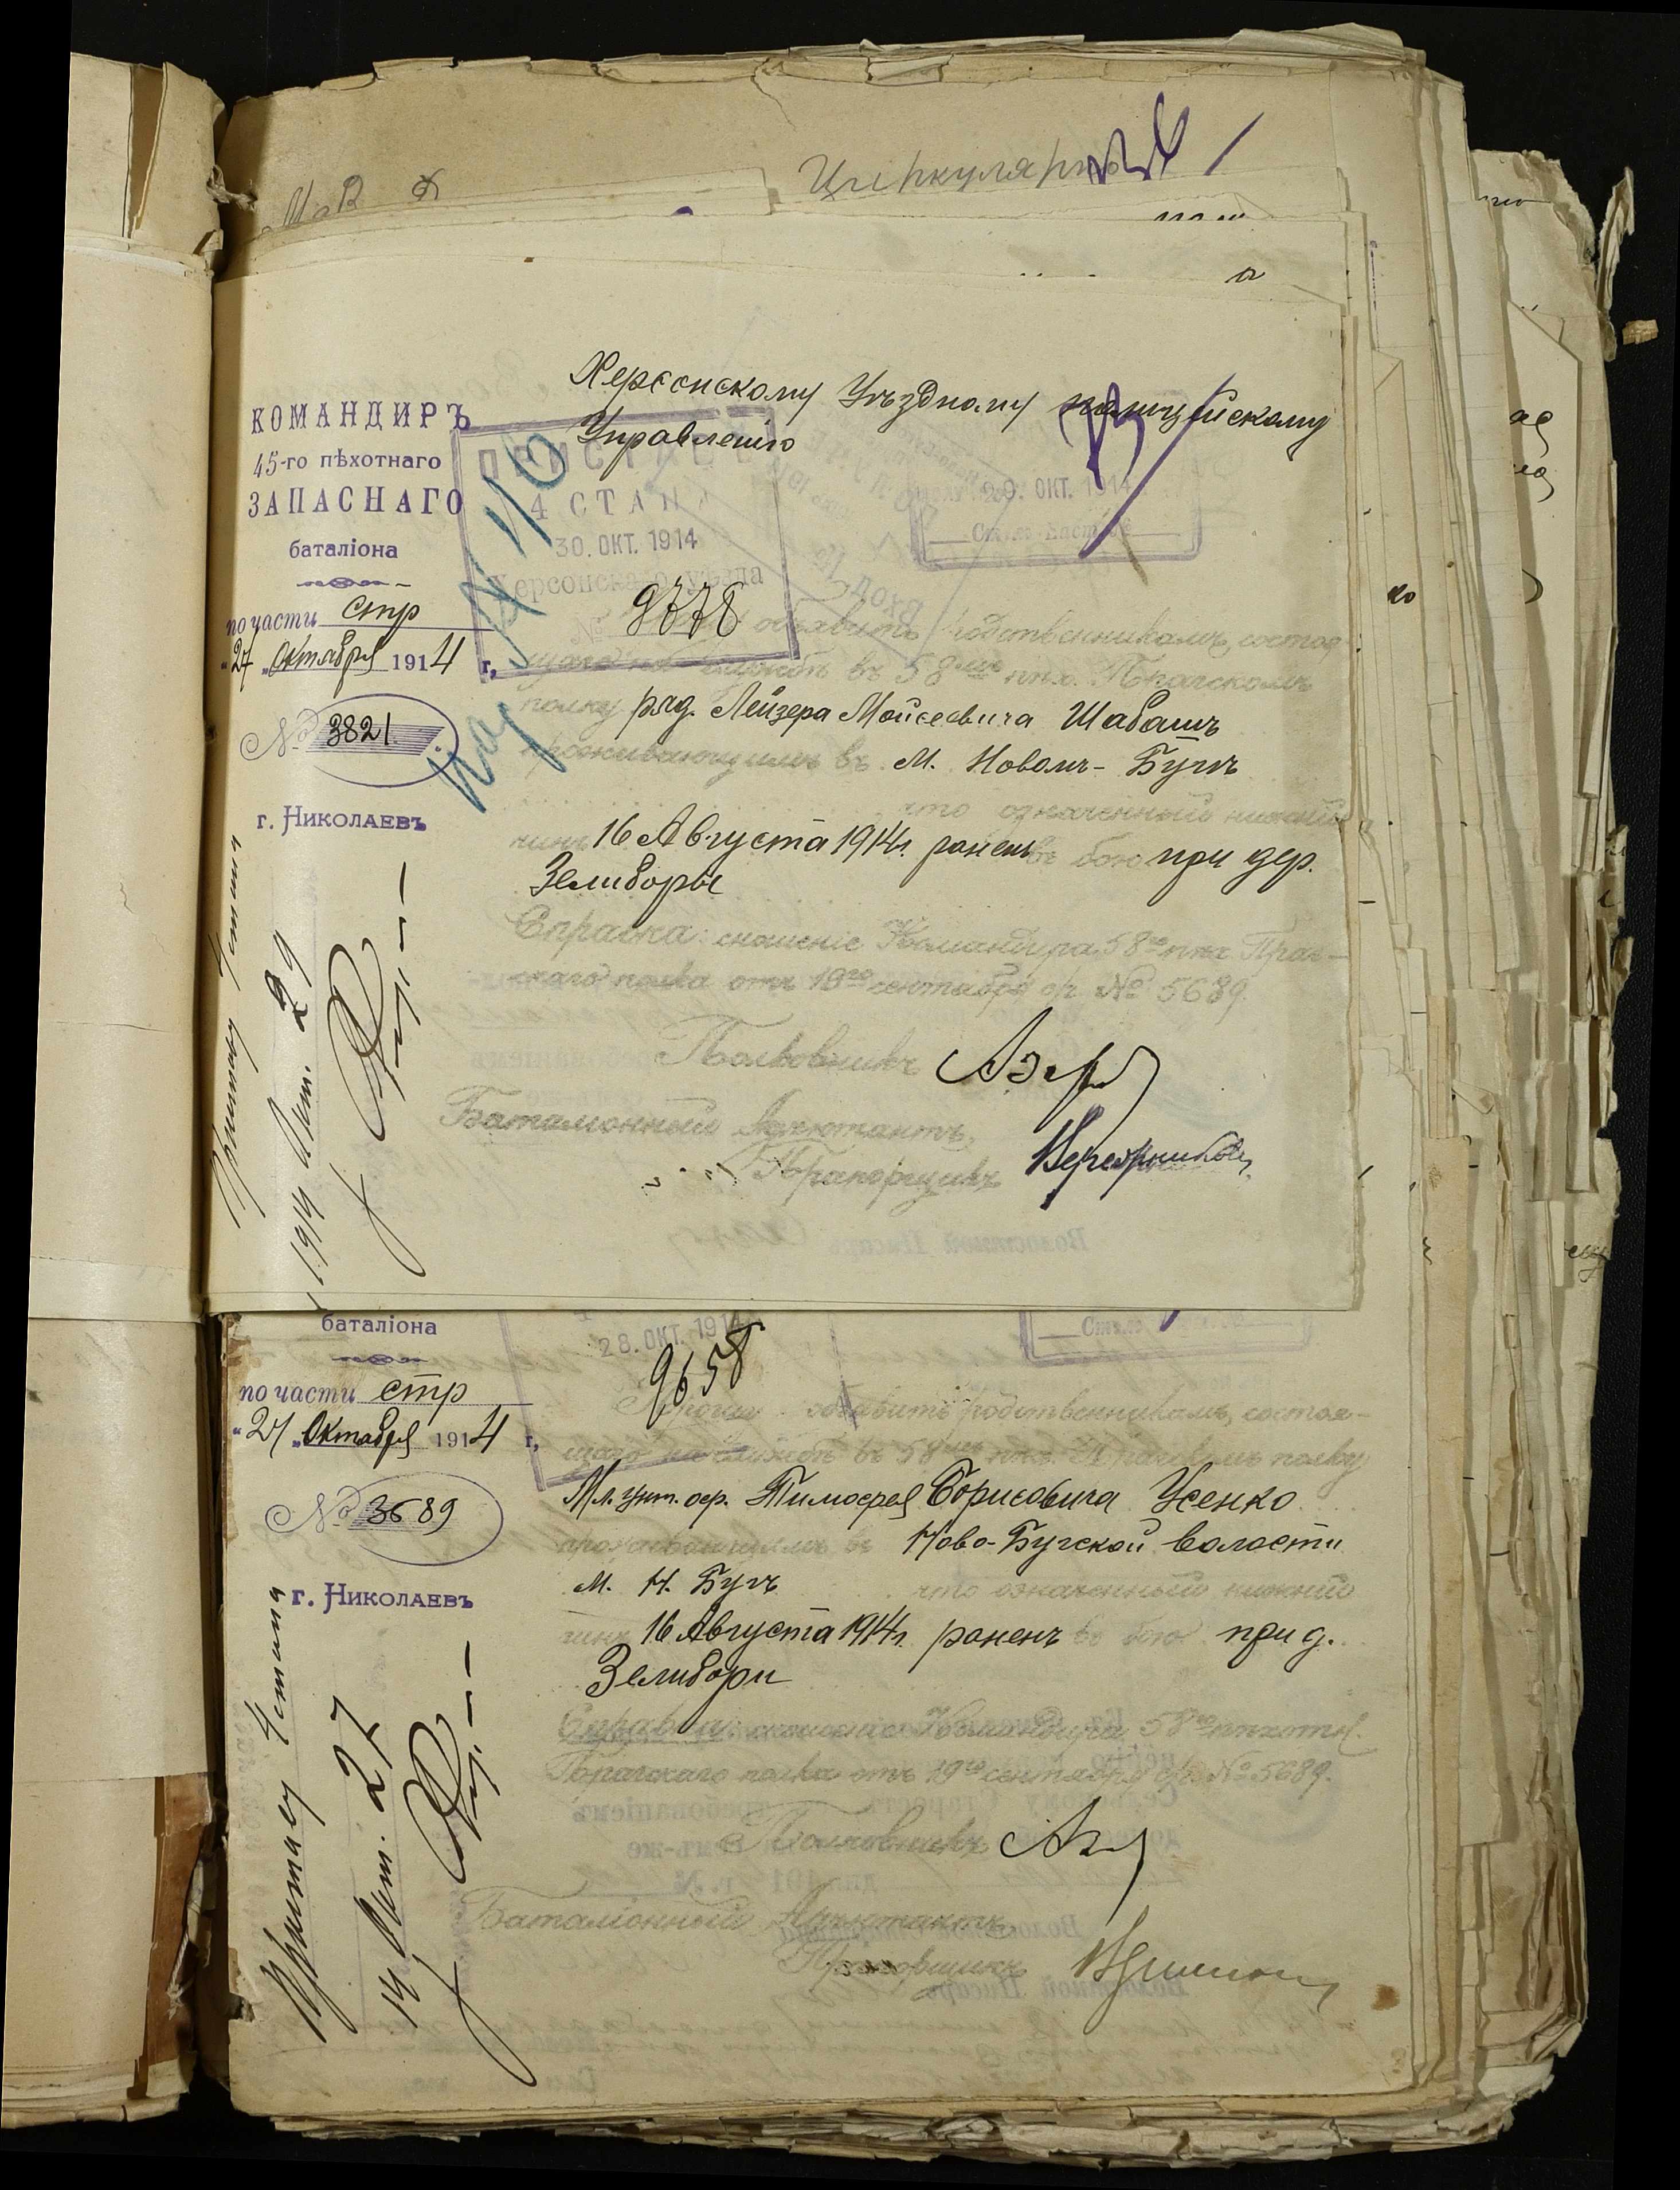 М. В. Д.
Циркулярно
Херсонскому Уѣздному полицейскому
Управленію
КОМАНДИРЪ
45-го пѣхотнаго
ЗАПАСНАГО
баталіона
по части стр
"27" Октября 1914 г.
№ 3821
г. Николаевъ
4 СТАНА
30. ОКТ. 1914
Херсонскаго уѣзда
№ 9778
29. ОКТ. 1914
объявить родственникамъ, состоя-
щаго на службѣ въ 58мъ пѣх. Прагскомъ
полку ряд. Лейзера Мойсеевича Шабашъ
проживающимъ въ М. Новомъ-Бугѣ
что означенный нижній
чинъ 16 Августа 1914г. раненъ въ бою при дер.
Зелиборы
Справка: сношеніе Командира 58го пѣх. Праг-
скаго полка отъ 19го сентября с/г. № 5689.
Полковникъ
Баталіонный Адъютантъ,
Прапорщикъ
Приставу 4 стана
1914 Окт. 29
баталіона
по части стр
"27" Октября 1914 г.
№ 3689
г. Николаевъ
28. ОКТ. 1914
9658
Прошу объявить родственникамъ, состоя-
щаго на службѣ въ 58мъ пѣх. Прагскомъ полку
Мл. унт. оф. Тимофея Борисовича Усенко
проживающимъ въ Ново-Бугской волости
м. Н. Бугъ что означенный нижній
чинъ 16 Августа 1914г. раненъ въ бою при д.
Зелибори
Справка: сношеніе Командира 58го пѣхотн.
Прагскаго полка отъ 19го сентября с/г. № 5689.
Полковникъ
Баталіонный Адъютантъ,
Прапорщикъ
Приставу 4 стана
14 Окт. 27